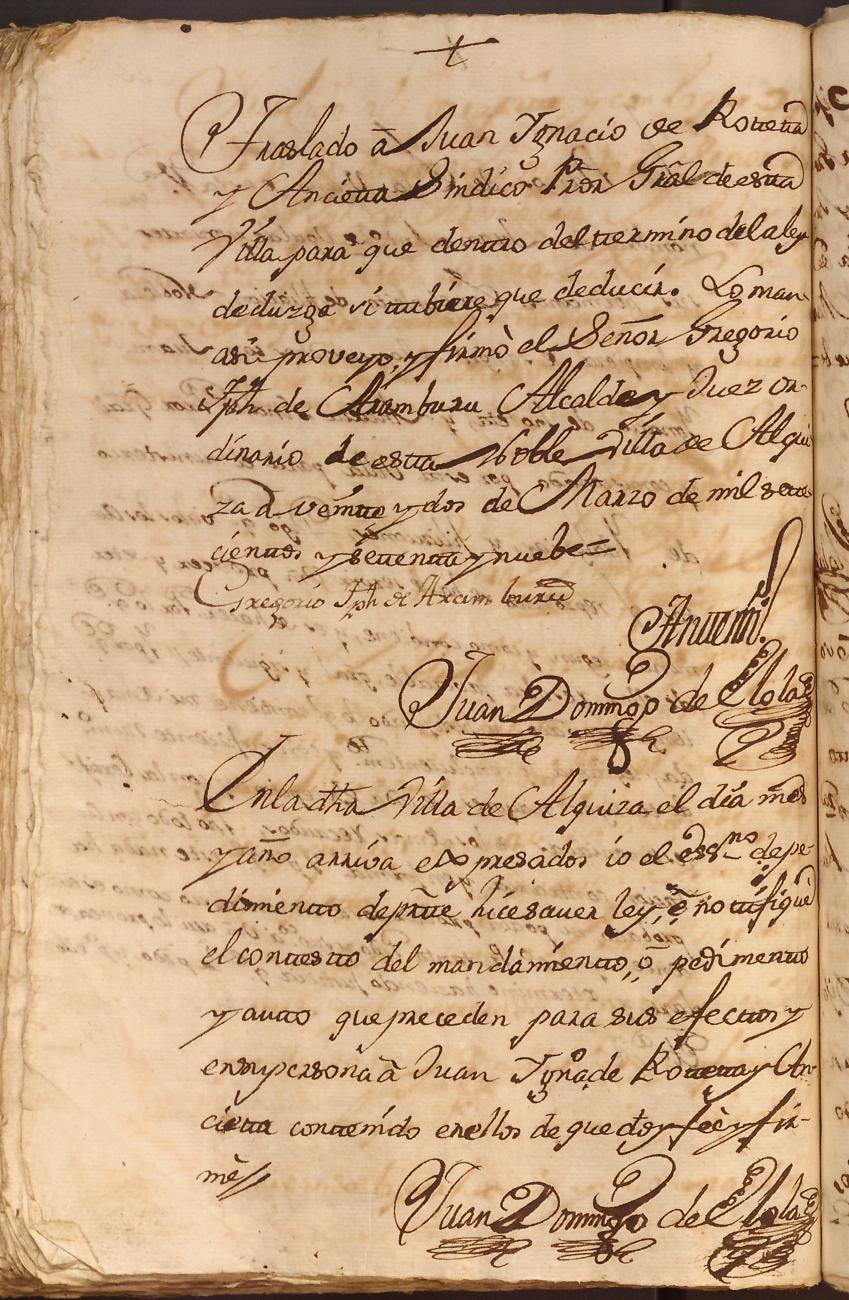 +
Traslado à Juan Ygnacio de Rotetta
y Ancietta Sindico Pror Gral de estta
Villa para que dentro del termino de la ley
deduzga si tubiere que deducir. Lo man-
asi proveyo, y firmò el Señor Gregorio
Jph de Aramburu Alcalde y Juez or-
dinario de estta Noble Villa de Alqui
za a veintte y dos de Marzo de mil sette
cienttos y settentta y nuebe=
Gregorio Jph de Aramburu
Antemi
Juan Domingo de Elola
En la dha Villa de Alquiza el dia mes
y año arriva expresados io el essno de pe-
dimientto de pтte hice saver ley, è notifiquè
el contestto del mandamientto, ò pedimentto
y autto que preceden para sus efecttos y
en su persona à Juan Ygno de Rotetta y An-
cietta conttenido en ellos de que doy feè y fir-
mè//
Juan Domingo de Elola